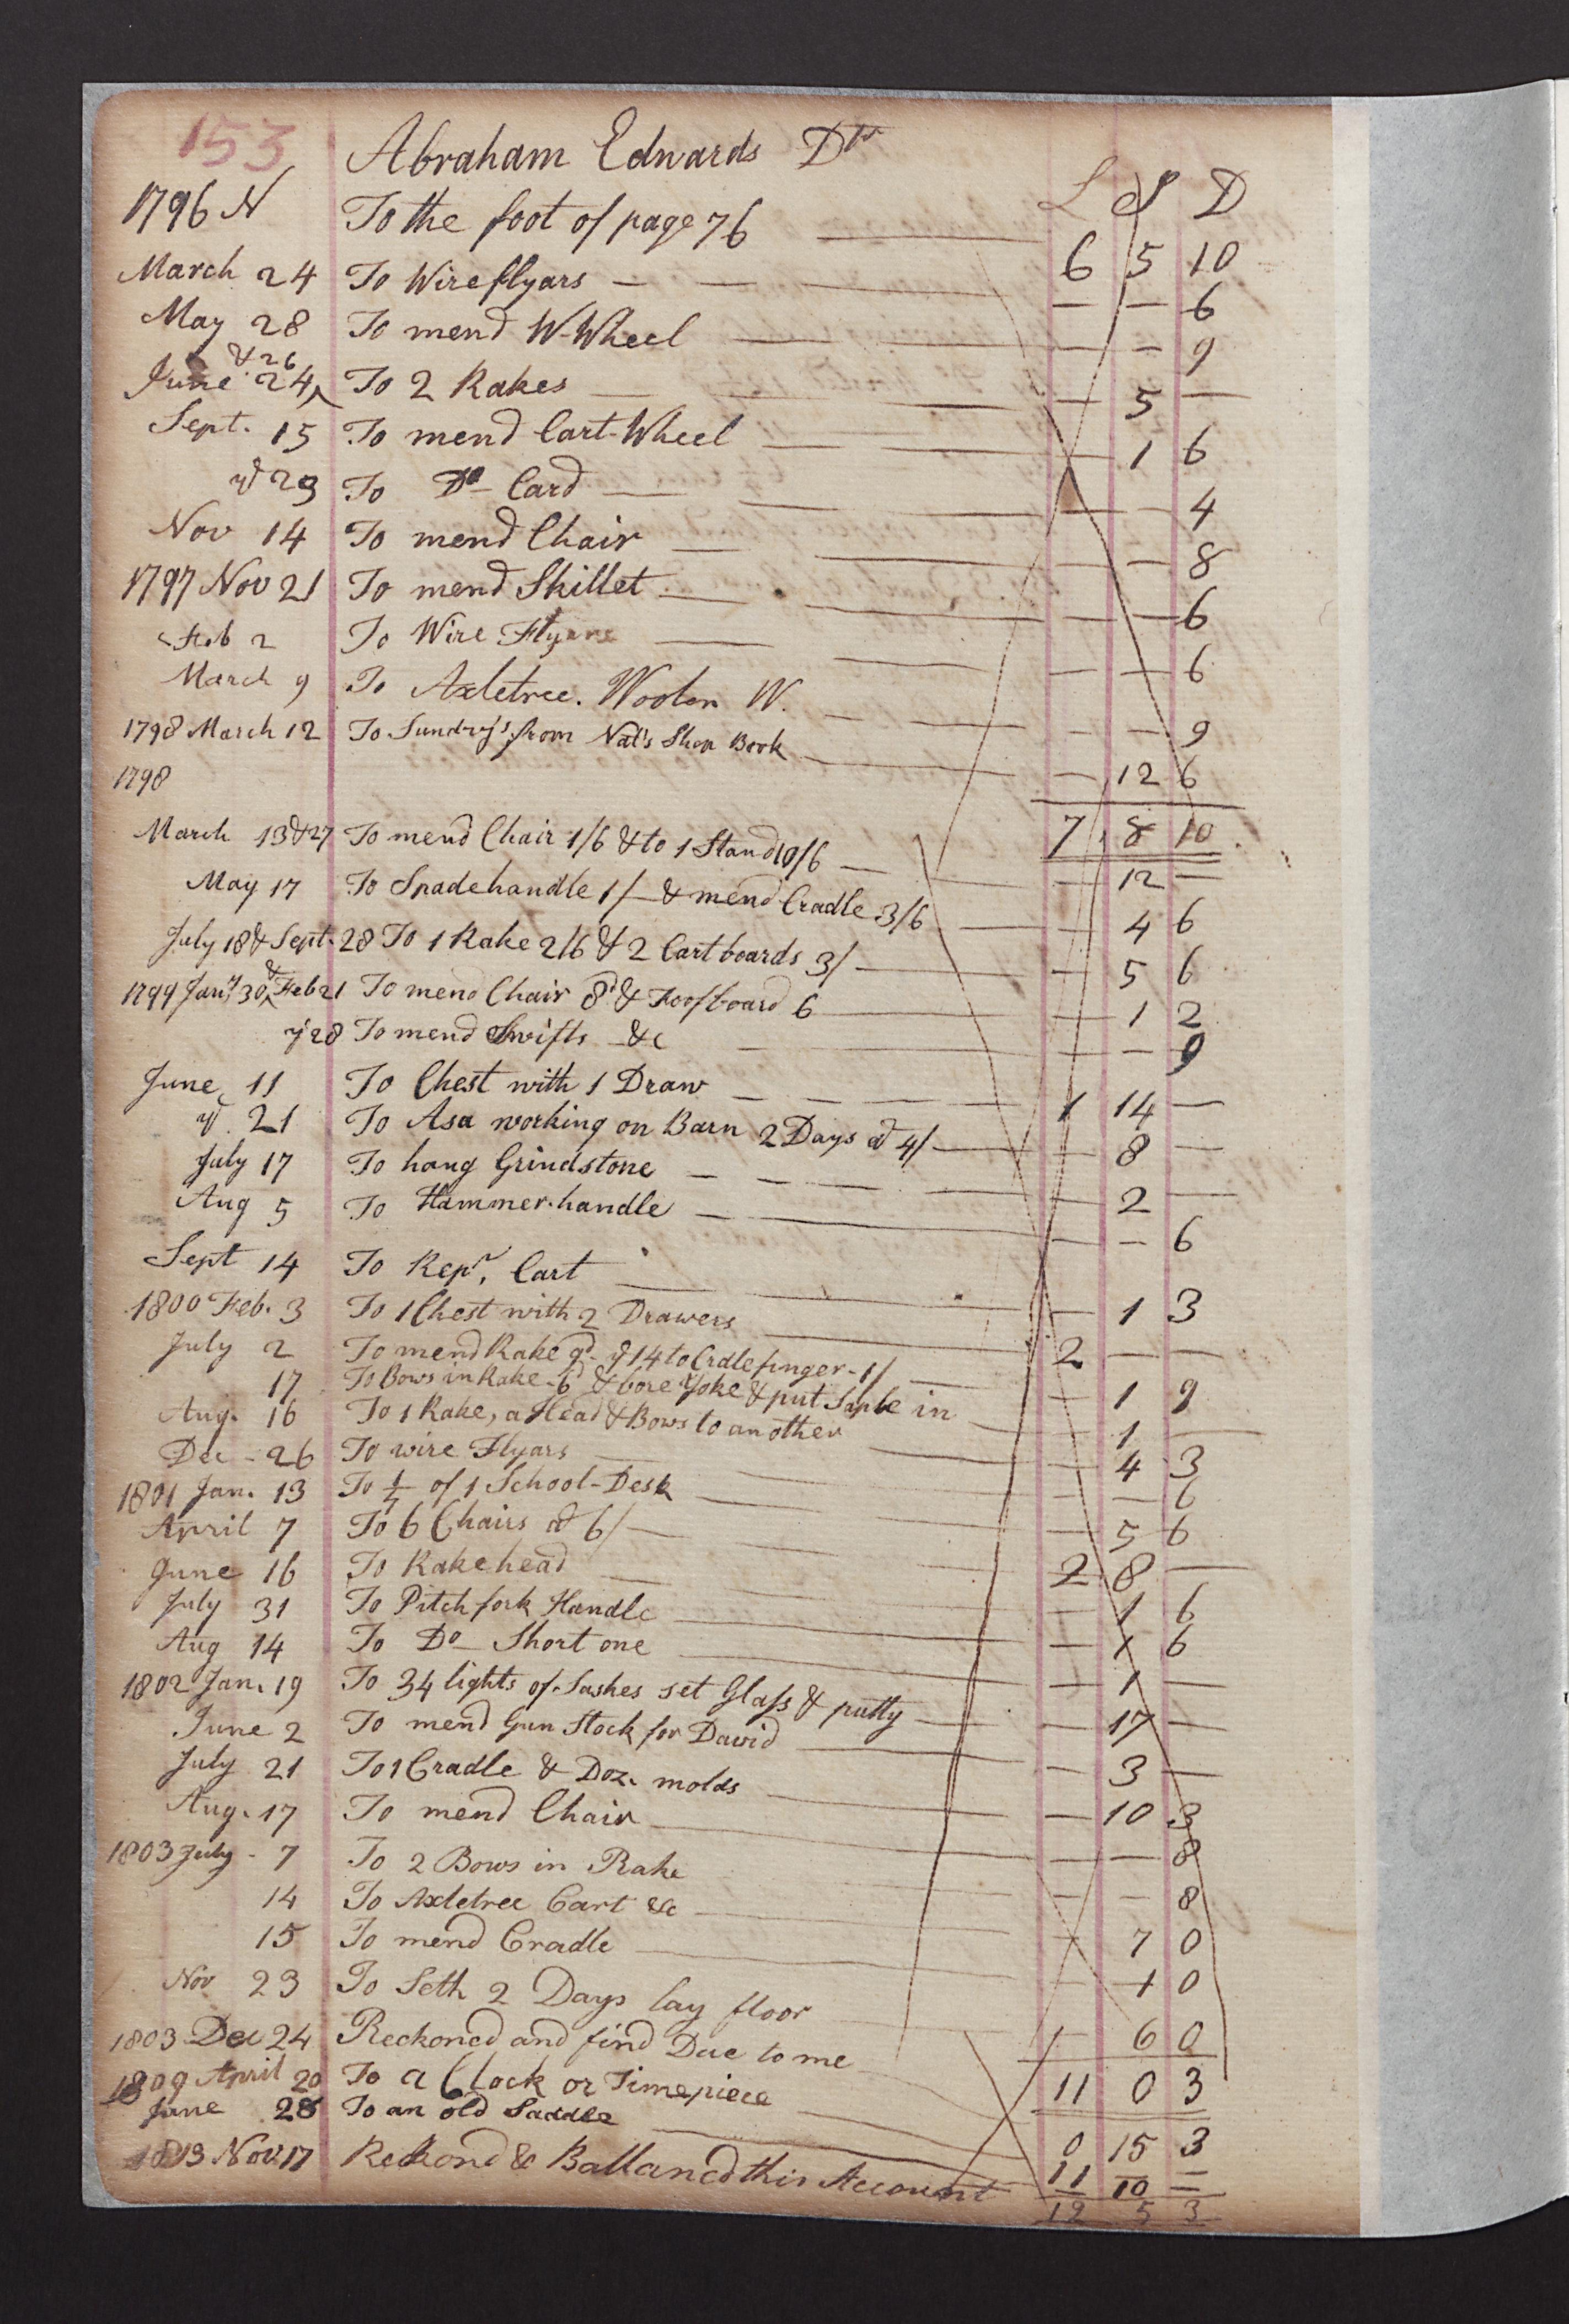 153 Abraham Edwards Dr
L S D
1796 N To the foot of page 76 — 6 5 10
March 24 To Wire flyars — — — — — 6
May 28 To mend W-Wheel — — — 9
June 24 & 26 To 2 Rakes — — 5 —
Sept. 15 To mend Cart-Wheel — — 1 6
29 To Do Card — — — 4
Nov 14 To mend Chair — — — 8
1797 Nov 21 To mend Skillet — — — 6
Feb 2 To Wire Flyars — — — 6
March 9 To Axletree. Woolen W. — — — 9
1798 March 12 To Sundry's from Nat's Shop Book — — 12 6
1798
7 8 10
March 13 & 27 To mend Chair 1/6 & to 1 Stand 10/6 — — 12 —
May 17 To Spadehandle 1/— & mend Cradle 3/6 — — 4 6
July 18 & Sept. 28 To 1 Rake 2/6 & 2 Cartboards 3/ — — 5 6
1799 Jany 30 & Feb 21 To mend Chair 8d & Foofboard 6 — — 1 2
28 To mend Swifts &c — — — 9
June 11 To Chest with 1 Draw — — 1 14 —
21 To Asa working on Barn 2 Days @ 4/ — — 8 —
July 17 To hang Grindstone — — — 2 —
Aug 5 To Hammer-handle — — — 6
Sept 14 To Repr. Cart — — 1 3
1800 Feb. 3 To 1 Chest with 2 Drawers — 2 — —
July 2 To mend Rake 9d. 14 to Crdle finger - 1/ — — 1 9
17 To Bows in Rake - 6d & bore Yoke & put Saple in — — 1 —
Aug. 16 To 1 Rake, a Head & Bows to another — — 4 3
Dec - 26 To wire Flyars — — — 6
1801 Jan. 13 To 1/7 of 1 School-Desk — — 5 6
April 7 To 6 Chairs @ 6/ — 2 8 —
June 16 To Rakehead — — 1 6
July 31 To Pitch fork Handle — — 1 6
Aug 14 To Do — Short one — — 1 —
1802 Jan. 19 To 34 lights of Sashes set Glass & putty — — 17 —
June 2 To mend Gun Stock for David — — 3 —
July 21 To 1 Cradle & Doz. molds — — 10 3
Aug. 17 To mend Chair — — — 8
1803 July - 7 To 2 Bows in Rake — — 8
14 To Axletree Cart &c — — 7 0
15 To mend Cradle — — 1 0
Nov 23 To Seth 2 Days lay floor — — 6 0
1803 Dec 24 Reckoned and find Due to me 11 0 3
1809 April 20 To a Clock or Timepiece — 0 15 3
June 28 To an old Saddle — 11 10 —
1813 Nov. 17 Reckond & Ballancd this Account 12 5 3